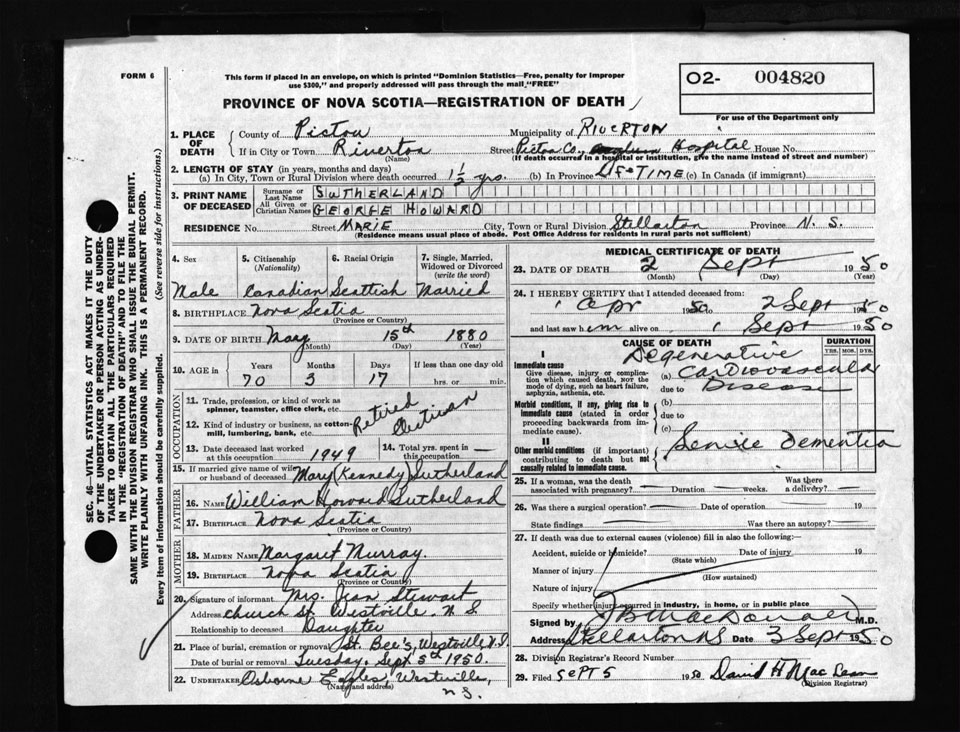 FORM 6
This form if placed in an envelope, on which is printed "Dominion Statistics—Free, penalty for improper
use $300," and properly addressed will pass through the mail "FREE"
O2- 004820
For use of the Department only
PROVINCE OF NOVA SCOTIA—REGISTRATION OF DEATH
1. PLACE OF DEATH
County of Pictou Municipality of RIVERTON
If in City or Town Riverton Street Pictou Co. Hospital House No.
(Name) (If death occurred in a hospital or institution, give the name instead of street and number)
2. LENGTH OF STAY (in years, months and days)
(a) In City, Town or Rural Division where death occurred 1½ yrs. (b) In Province LIFETIME (c) In Canada (if immigrant)
3. PRINT NAME OF DECEASED
Surname or Last Name SUTHERLAND
All Given or Christian Names GEORGE HOWARD
RESIDENCE No. Street MARIE City, Town or Rural Division Stellarton Province N. S.
(Residence means usual place of abode. Post Office Address for residents in rural parts not sufficient)
4. Sex 5. Citizenship (Nationality) 6. Racial Origin 7. Single, Married, Widowed or Divorced (write the word)
Male Canadian Scottish Married
8. BIRTHPLACE Nova Scotia
(Province or Country)
9. DATE OF BIRTH May 15th 1880
(Month) (Day) (Year)
10. AGE in Years Months Days If less than one day old
70 3 17 hrs. or min.
OCCUPATION
11. Trade, profession, or kind of work as spinner, teamster, office clerk, etc. Retired
12. Kind of industry or business, as cotton-mill, lumbering, bank, etc.
13. Date deceased last worked at this occupation 1949 14. Total yrs. spent in this occupation —
15. If married give name of wife or husband of deceased Mary (Kennedy) Sutherland
FATHER
16. NAME William Howard Sutherland
17. BIRTHPLACE Nova Scotia
(Province or Country)
MOTHER
18. MAIDEN NAME Margaret Murray.
19. BIRTHPLACE Nova Scotia
(Province or Country)
20. Signature of informant Mrs. Jean Stewart
Address Church St. Westville, N S
Relationship to deceased Daughter
21. Place of burial, cremation or removal St. Bee's, Westville, N.S.
Date of burial or removal Tuesday, Sept 5th 1950.
22. UNDERTAKER Osborne Eagles, Westville, N.S.
(Name and address)
MEDICAL CERTIFICATE OF DEATH
23. DATE OF DEATH 2 Sept 1950
(Month) (Day) (Year)
24. I HEREBY CERTIFY that I attended deceased from:
1 Apr 1950 to 2 Sept 1950
and last saw him alive on 1 Sept 1950
CAUSE OF DEATH DURATION
YRS. MOS. DYS.
I
Immediate cause
Give disease, injury or complication which caused death, not the mode of dying, such as heart failure, asphyxia, asthenia, etc.
(a) Degenerative Cardiovascular Disease
due to
Morbid conditions, if any, giving rise to immediate cause (stated in order proceeding backwards from immediate cause).
(b)
due to
(c)
II
Other morbid conditions (if important) contributing to death but not causally related to immediate cause.
Senile Dementia
25. If a woman, was the death associated with pregnancy? — Duration — weeks. Was there a delivery? —
26. Was there a surgical operation? — Date of operation 19
State findings Was there an autopsy?
27. If death was due to external causes (violence) fill in also the following:—
Accident, suicide or homicide? Date of injury 19
(State which)
Manner of injury
(How sustained)
Nature of injury
Specify whether injury occurred in industry, in home, or in public place
Signed by J B MacDonald M.D.
Address Stellarton NS Date 3 Sept 1950
28. Division Registrar's Record Number
29. Filed SEPT 5 1950 David H MacLean
(Division Registrar)
SEC. 46—VITAL STATISTICS ACT MAKES IT THE DUTY
OF THE UNDERTAKER OR PERSON ACTING AS UNDER-
TAKER TO OBTAIN ALL THE PARTICULARS REQUIRED
IN THE "REGISTRATION OF DEATH" AND TO FILE THE
SAME WITH THE DIVISION REGISTRAR WHO SHALL ISSUE THE BURIAL PERMIT.
WRITE PLAINLY WITH UNFADING INK. THIS IS A PERMANENT RECORD.
Every item of information should be carefully supplied. (See reverse side for instructions.)